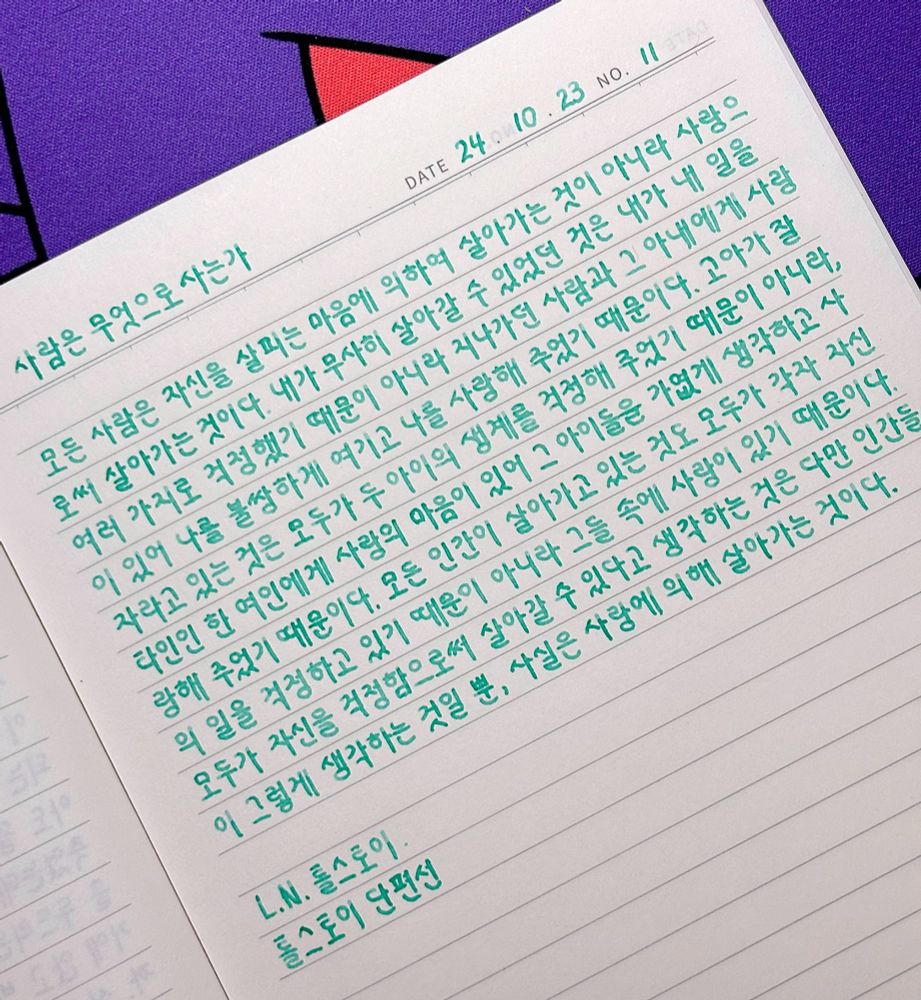 DATE 24 . 10 . 23 NO. 11
사람은 무엇으로 사는가
모든 사람은 자신을 살피는 마음에 의하여 살아가는 것이 아니라 사랑으
로써 살아가는 것이다. 내가 무사히 살아갈 수 있었던 것은 내가 내 일을
여러 가지로 걱정했기 때문이 아니라 지나가던 사람과 그 아내에게 사랑
이 있어 나를 불쌍하게 여기고 나를 사랑해 주었기 때문이다. 고아가 잘
자라고 있는 것은 모두가 두 아이의 생계를 걱정해 주었기 때문이 아니라,
타인인 한 여인에게 사랑의 마음이 있어 그 아이들을 가엾게 생각하고 사
랑해 주었기 때문이다. 모든 인간이 살아가고 있는 것도 모두가 각자 자신
의 일을 걱정하고 있기 때문이 아니라 그들 속에 사랑이 있기 때문이다.
모두가 자신을 걱정함으로써 살아갈 수 있다고 생각하는 것은 다만 인간들
이 그렇게 생각하는 것일 뿐, 사실은 사랑에 의해 살아가는 것이다.
L.N. 톨스토이.
톨스토이 단편선